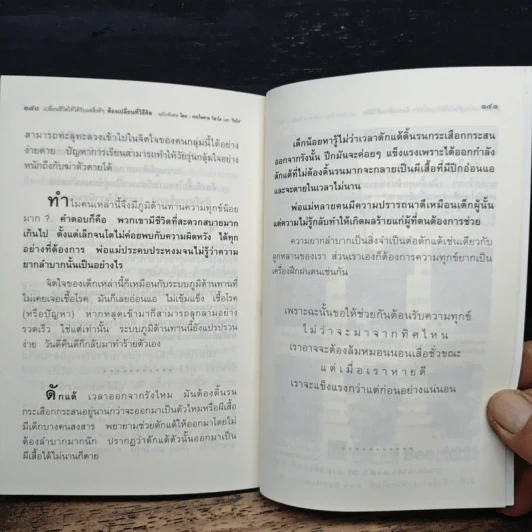 ๑๘๐ เปลี่ยนชีวิตให้ได้รับแต่สิ่งดีๆ ต้องเปลี่ยนที่วิธีคิด
สามารถทะลุทะลวงเข้าไปในจิตใจของคนกลุ่มนี้ได้อย่าง
ง่ายดาย ปัญหาการเรียนสามารถทำให้วัยรุ่นกลุ้มใจอย่าง
หนักถึงกับฆ่าตัวตายได้
ทำไมคนเหล่านี้จึงมีภูมิต้านทานความทุกข์น้อย
มาก ? คำตอบก็คือ พวกเขามีชีวิตที่สะดวกสบายมาก
เกินไป ตั้งแต่เล็กจนโตไม่ค่อยพบกับความผิดหวัง ได้ทุก
อย่างที่ต้องการ พ่อแม่ประคบประหงมจนไม่รู้ว่าความ
ยากลำบากนั้นเป็นอย่างไร
จิตใจของเด็กเหล่านี้ก็เหมือนกับระบบภูมิต้านทานที่
ไม่เคยเจอเชื้อโรค มันก็เลยอ่อนแอ ไม่เข้มแข็ง เชื้อโรค
(หรือปัญหา) หากหลุดเข้ามาก็สามารถลุกลามอย่าง
รวดเร็ว ใช่แต่เท่านั้น ระบบภูมิต้านทานนี้ยังแปรปรวน
ง่าย วันดีคืนดีก็กลับมาทำร้ายตัวเอง
ดักแด้ เวลาออกจากรังไหม มันต้องดิ้นรน
กระเสือกกระสนอยู่นานกว่าจะออกมาเป็นตัวไหมหรือผีเสื้อ
มีเด็กบางคนสงสาร พยายามช่วยดักแด้ให้ออกมาโดยไม่
ต้องลำบากมากนัก ปรากฏว่าดักแด้ตัวนั้นออกมาเป็น
ผีเสื้อได้ไม่นานก็ตาย
๑๘๑
เด็กน้อยหารู้ไม่ว่าเวลาดักแด้ดิ้นรนกระเสือกกระสน
ออกจากรังนั้น ปีกมันจะค่อยๆ แข็งแรงเพราะได้ออกกำลัง
ดักแด้ที่ไม่ต้องดิ้นรนมากจะกลายเป็นผีเสื้อที่มีปีกอ่อนแอ
และจะตายในเวลาไม่นาน
พ่อแม่หลายคนมีความปรารถนาดีเหมือนเด็กผู้นั้น
แต่ความไม่รู้กลับทำให้เกิดผลร้ายแก่ผู้ที่ตนต้องการช่วย
ความยากลำบากเป็นสิ่งจำเป็นต่อดักแด้เช่นเดียวกับ
ลูกหลานของเรา ส่วนเราเองก็ต้องการความทุกข์ยากเป็น
เครื่องฝึกฝนตนเช่นกัน
เพราะฉะนั้นขอให้ช่วยกันต้อนรับความทุกข์
ไม่ว่าจะมาจากทิศไหน
เราอาจจะต้องล้มหมอนนอนเสื่อชั่วขณะ
แต่เมื่อเราหายดี
เราจะแข็งแรงกว่าแต่ก่อนอย่างแน่นอน